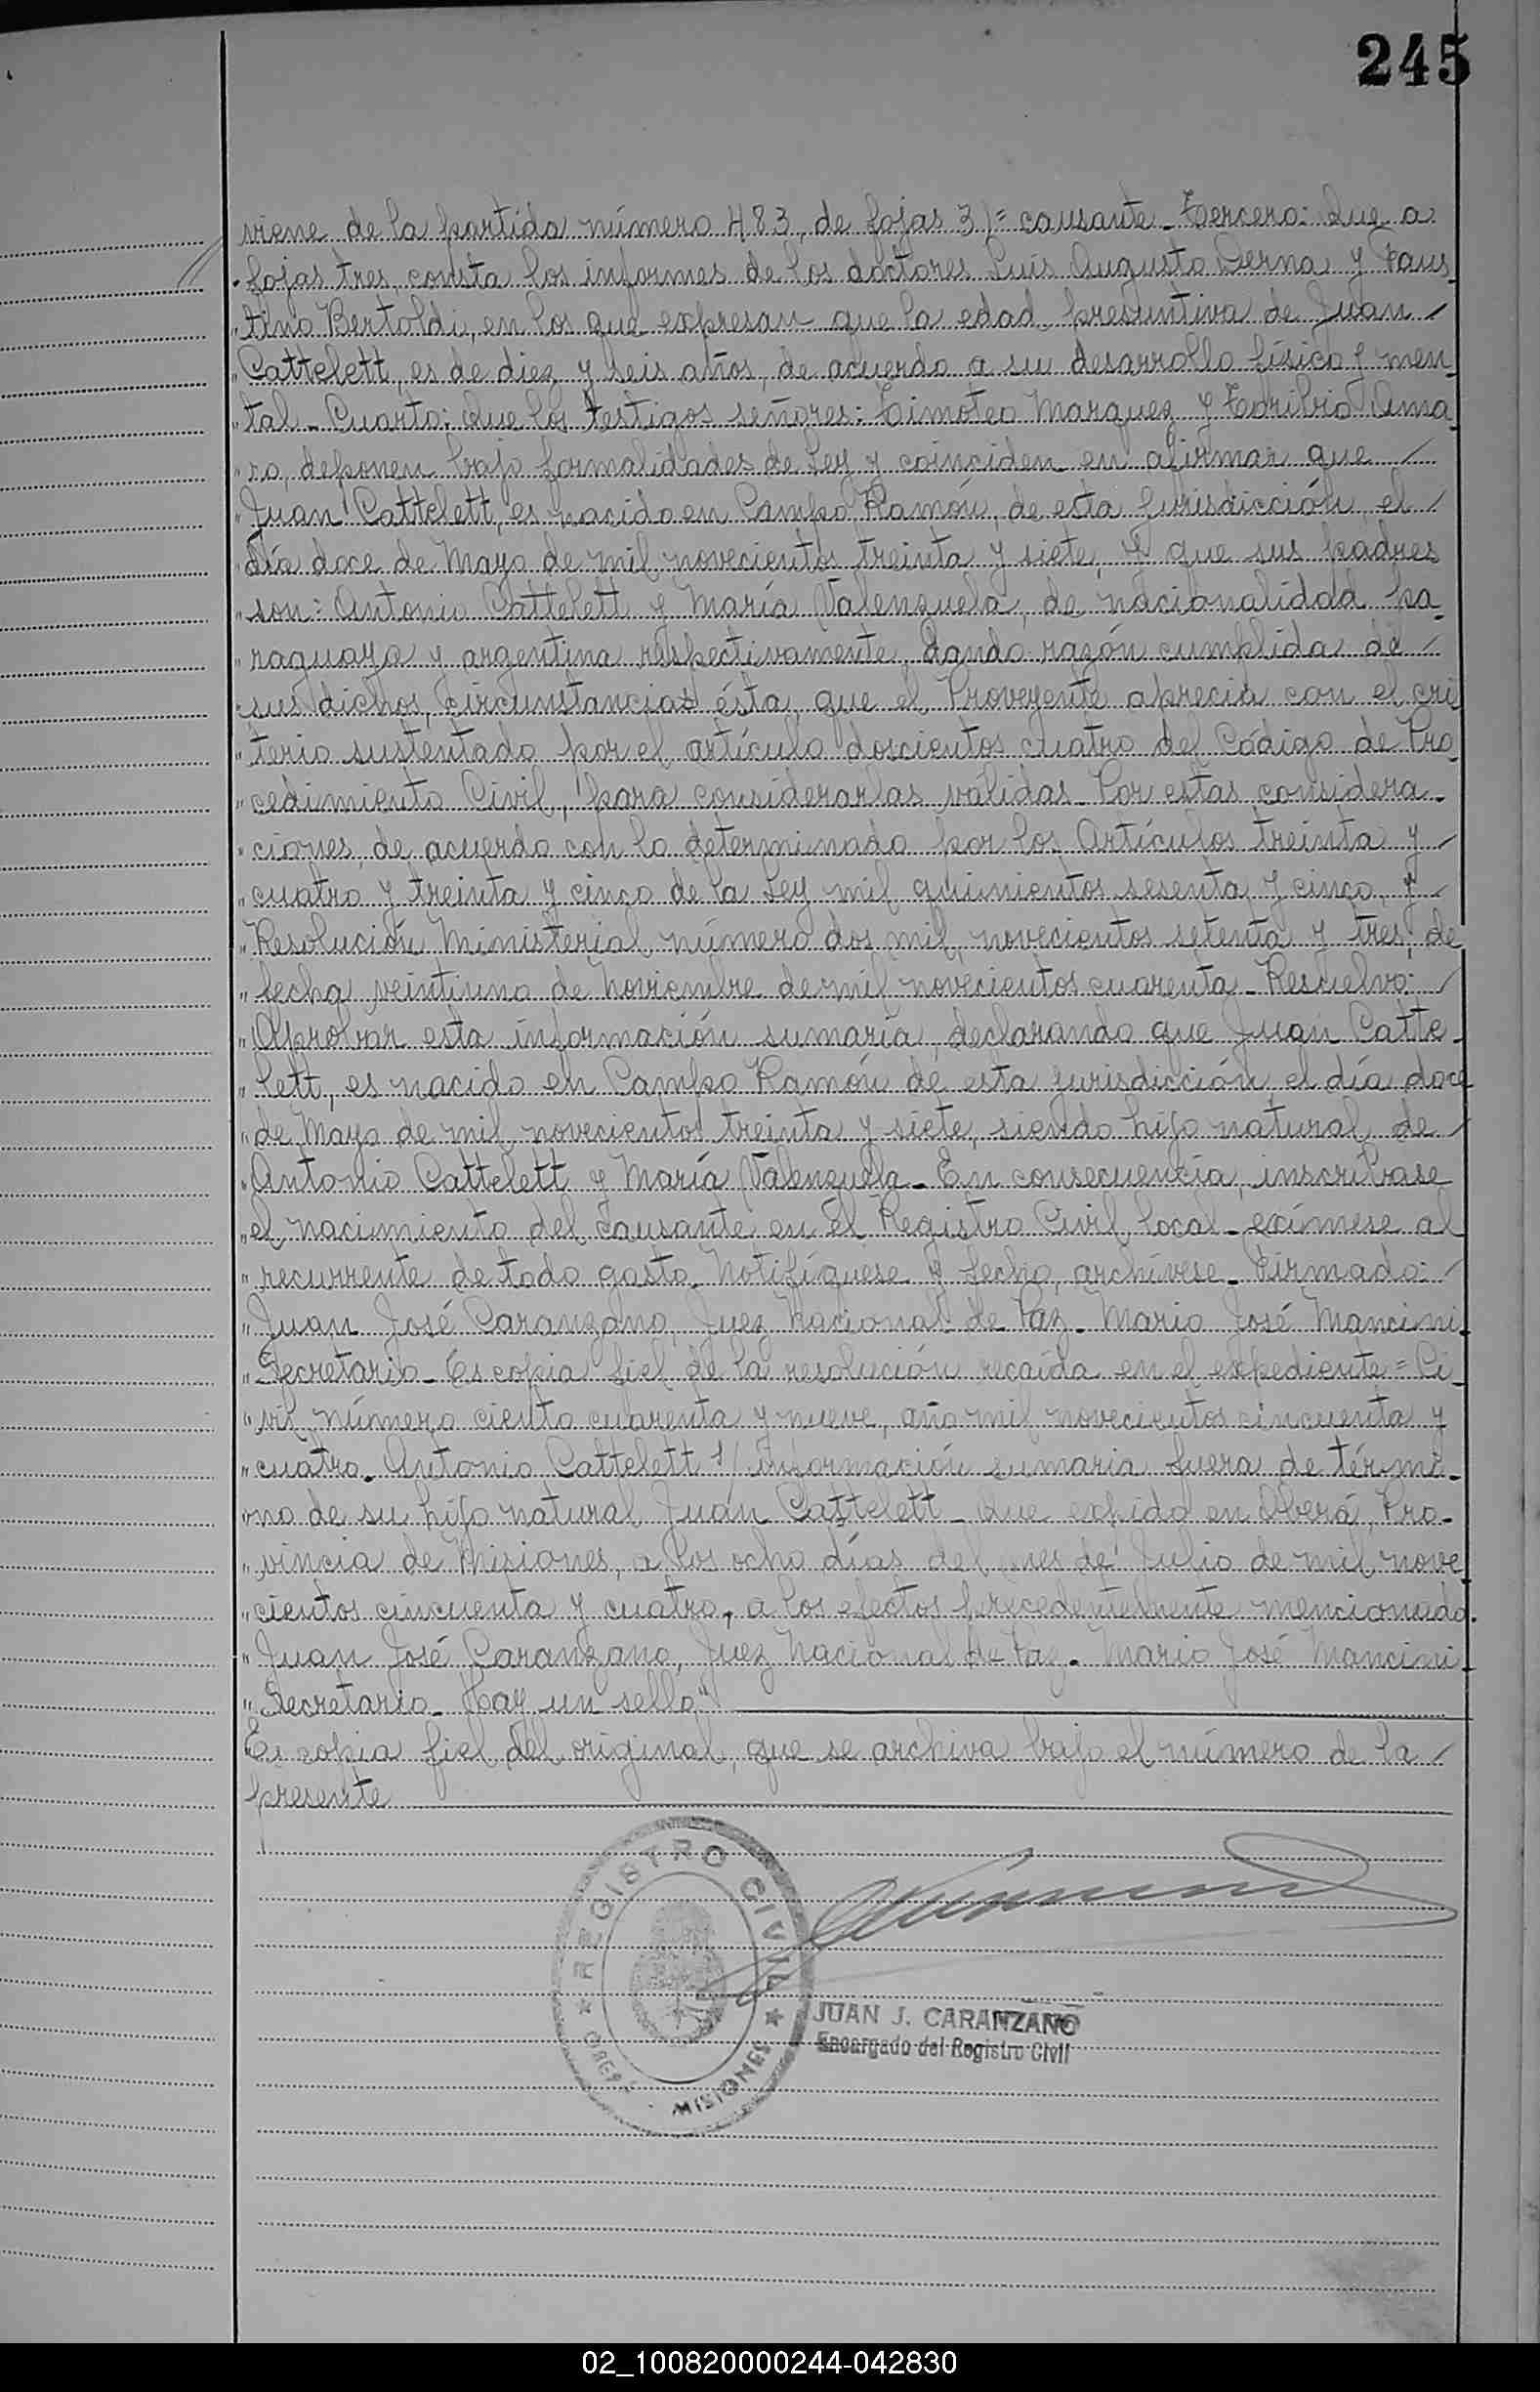 245
viene de la partida número 483, de fojas 31= causante_ Tercero: Que a
"fojas tres, consta los informes de los doctores Luis Augusto Derna y Faus_
"tino Bertoldi, en los que expresan que la edad presuntiva de Juan /
"Cattelett, es de diez y seis años, de acuerdo a su desarrollo físico y men_
"tal_ Cuarto: Que los testigos señores: Timoteo Marquez y Toribio Ama_
"ro, deponen bajo formalidades de Ley y coinciden en afirmar que /
"Juan Cattelett, es nacido en Campo Ramón, de esta jurisdicción, el /
"día doce de Mayo de mil novecientos treinta y siete, y que sus padres
"son: Antonio Cattelett y María Valenzuela, de nacionalidad pa_
"raguaya y argentina respectivamente, dando razón cumplida de /
"sus dichos, circunstancias ésta, que el Proveyente aprecia con el cri
"terio sustentado por el artículo doscientos cuatro del Código de Pro_
"cedimiento Civil, para considerarlas válidas_ Por estas considera_
"ciones, de acuerdo con lo determinado por los Artículos treinta y /
"cuatro y treinta y cinco de la Ley mil quinientos sesenta y cinco, y /
"Resolución Ministerial número dos mil, novecientos setenta y tres, de
"fecha veintiuno de Noviembre de mil novecientos cuarenta_ Resuelvo: /
"Aprobar esta información sumaria, declarando que Juan Catte_
"lett, es nacido en Campo Ramón de esta jurisdicción, el día doce
"de Mayo de mil novecientos treinta y siete, siendo hijo natural de /
"Antonio Cattelett y María Valenzuela_ En consecuencia, inscríbase
"el nacimiento del causante en el Registro Civil local_ exímese al
"recurrente de todo gasto_ Notifíquese y fecho, archívese_ Firmado: /
"Juan José Caranzano, Juez Nacional de Paz_ Mario José Mancini_
"Secretario_ Es copia fiel de la resolución recaída en el expediente= Ci_
"vil número ciento cuarenta y nueve, año mil novecientos cincuenta y
"cuatro_ Antonio Cattelett s/ información sumaria fuera de térmi_
"no de su hijo natural Juan Cattelett_ Que expido en Oberá, Pro_
"vincia de Misiones, a los ocho días del mes de Julio de mil nove_
"cientos cincuenta y cuatro, a los efectos precedentemente mencionado.
"Juan José Caranzano, Juez Nacional de Paz_ Mario José Mancini_
"Secretario_ Hay un sello"
Es copia fiel del original, que se archiva bajo el número de la /
presente
REGISTRO CIVIL
MISIONES
JUAN J. CARANZANO
Encargado del Registro Civil
02_100820000244-042830